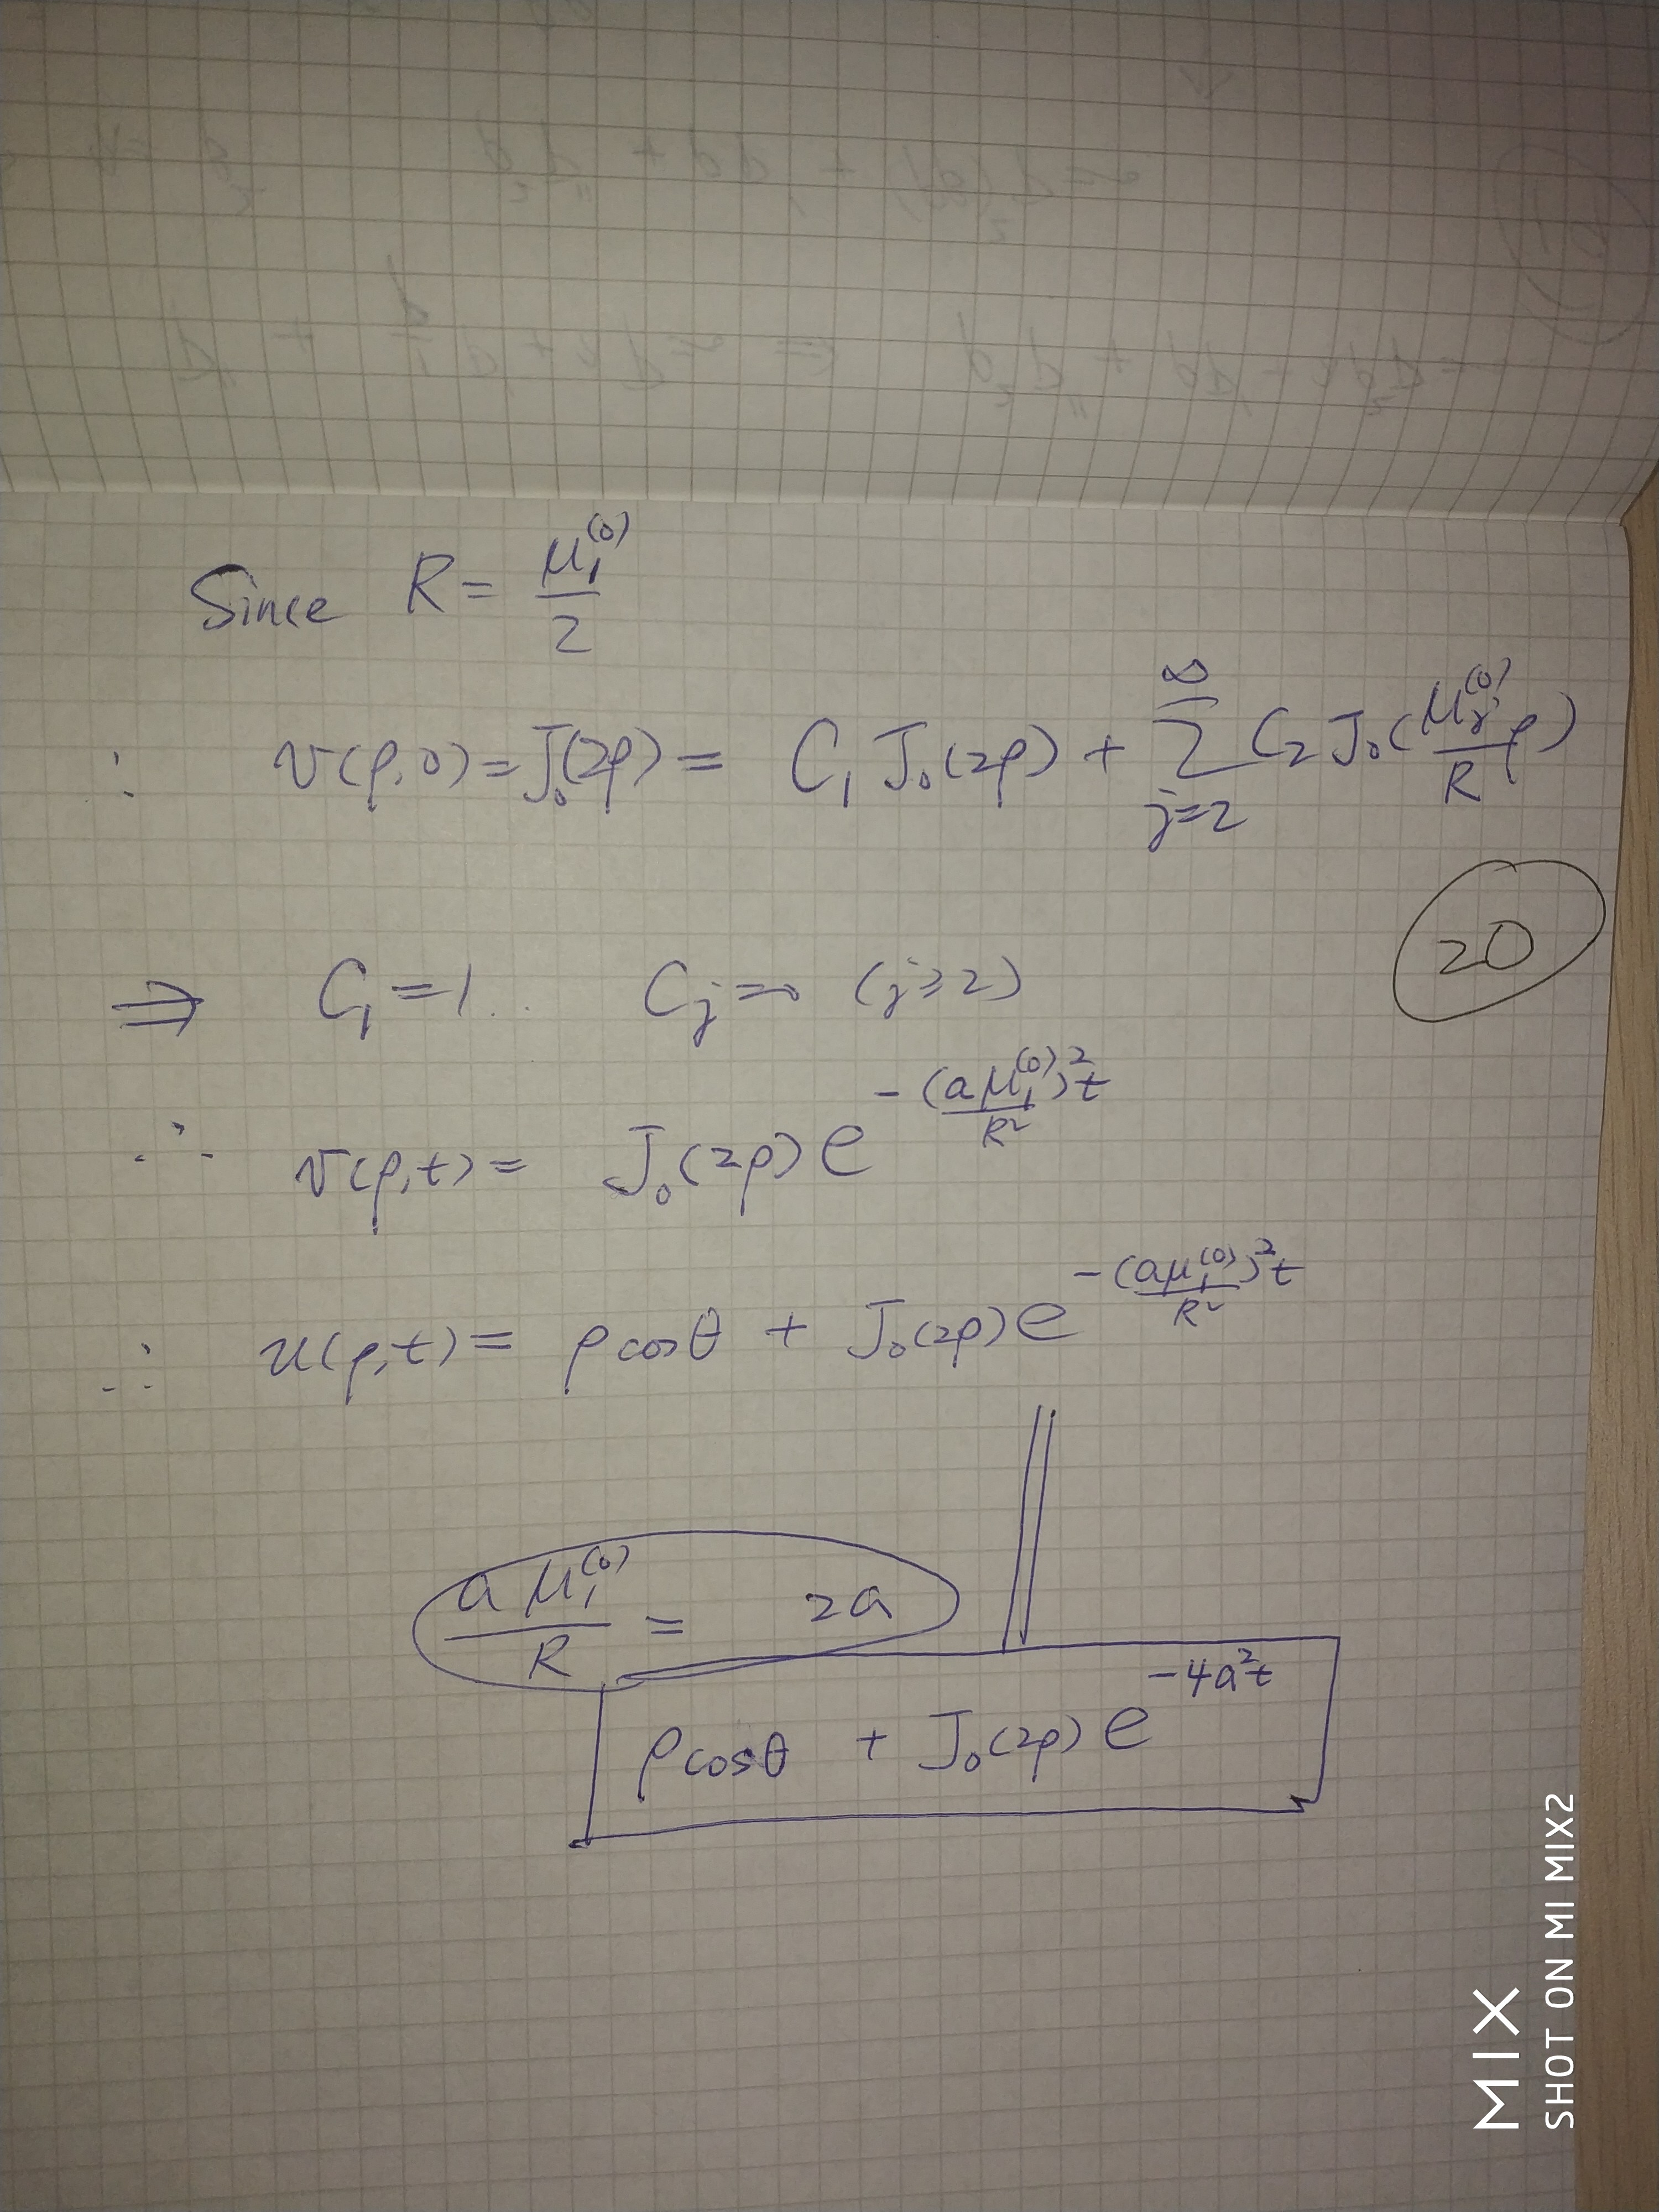 Since R = μ₁⁽⁰⁾/2
∴ v(ρ,0) = J₀(2ρ) = C₁ J₀(2ρ) + ∑_{j=2}^{∞} C₂ J₀(μⱼ⁽⁰⁾/R ρ)
20
⇒ C₁ = 1 .. Cⱼ = 0 (j ≥ 2)
∴ v(ρ,t) = J₀(2ρ) e^{-(aμ₁⁽⁰⁾)²t/R²}
∴ u(ρ,t) = ρ cosθ + J₀(2ρ) e^{-(aμ₁⁽⁰⁾)²t/R²}
aμ₁⁽⁰⁾/R = 2a
ρ cosθ + J₀(2ρ) e^{-4a²t}
MIX
SHOT ON MI MIX2